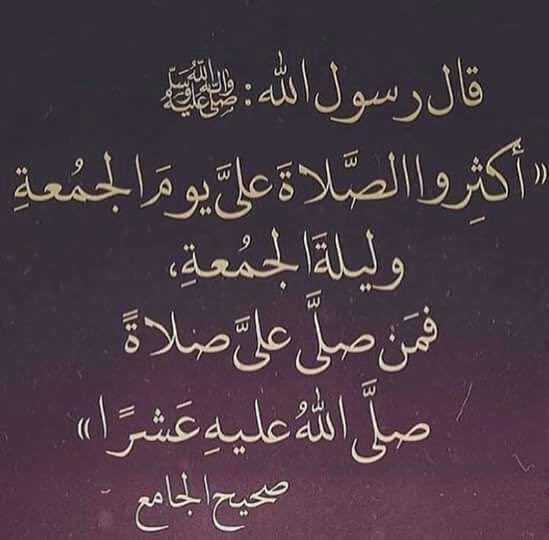 قال رسول الله ﷺ:
«أكثِروا الصَّلاةَ عليَّ يومَ الجمُعةِ
وليلةَ الجمُعةِ،
فمَن صلَّى عليَّ صلاةً
صلَّى اللهُ عليهِ عَشرًا»
صحيح الجامع